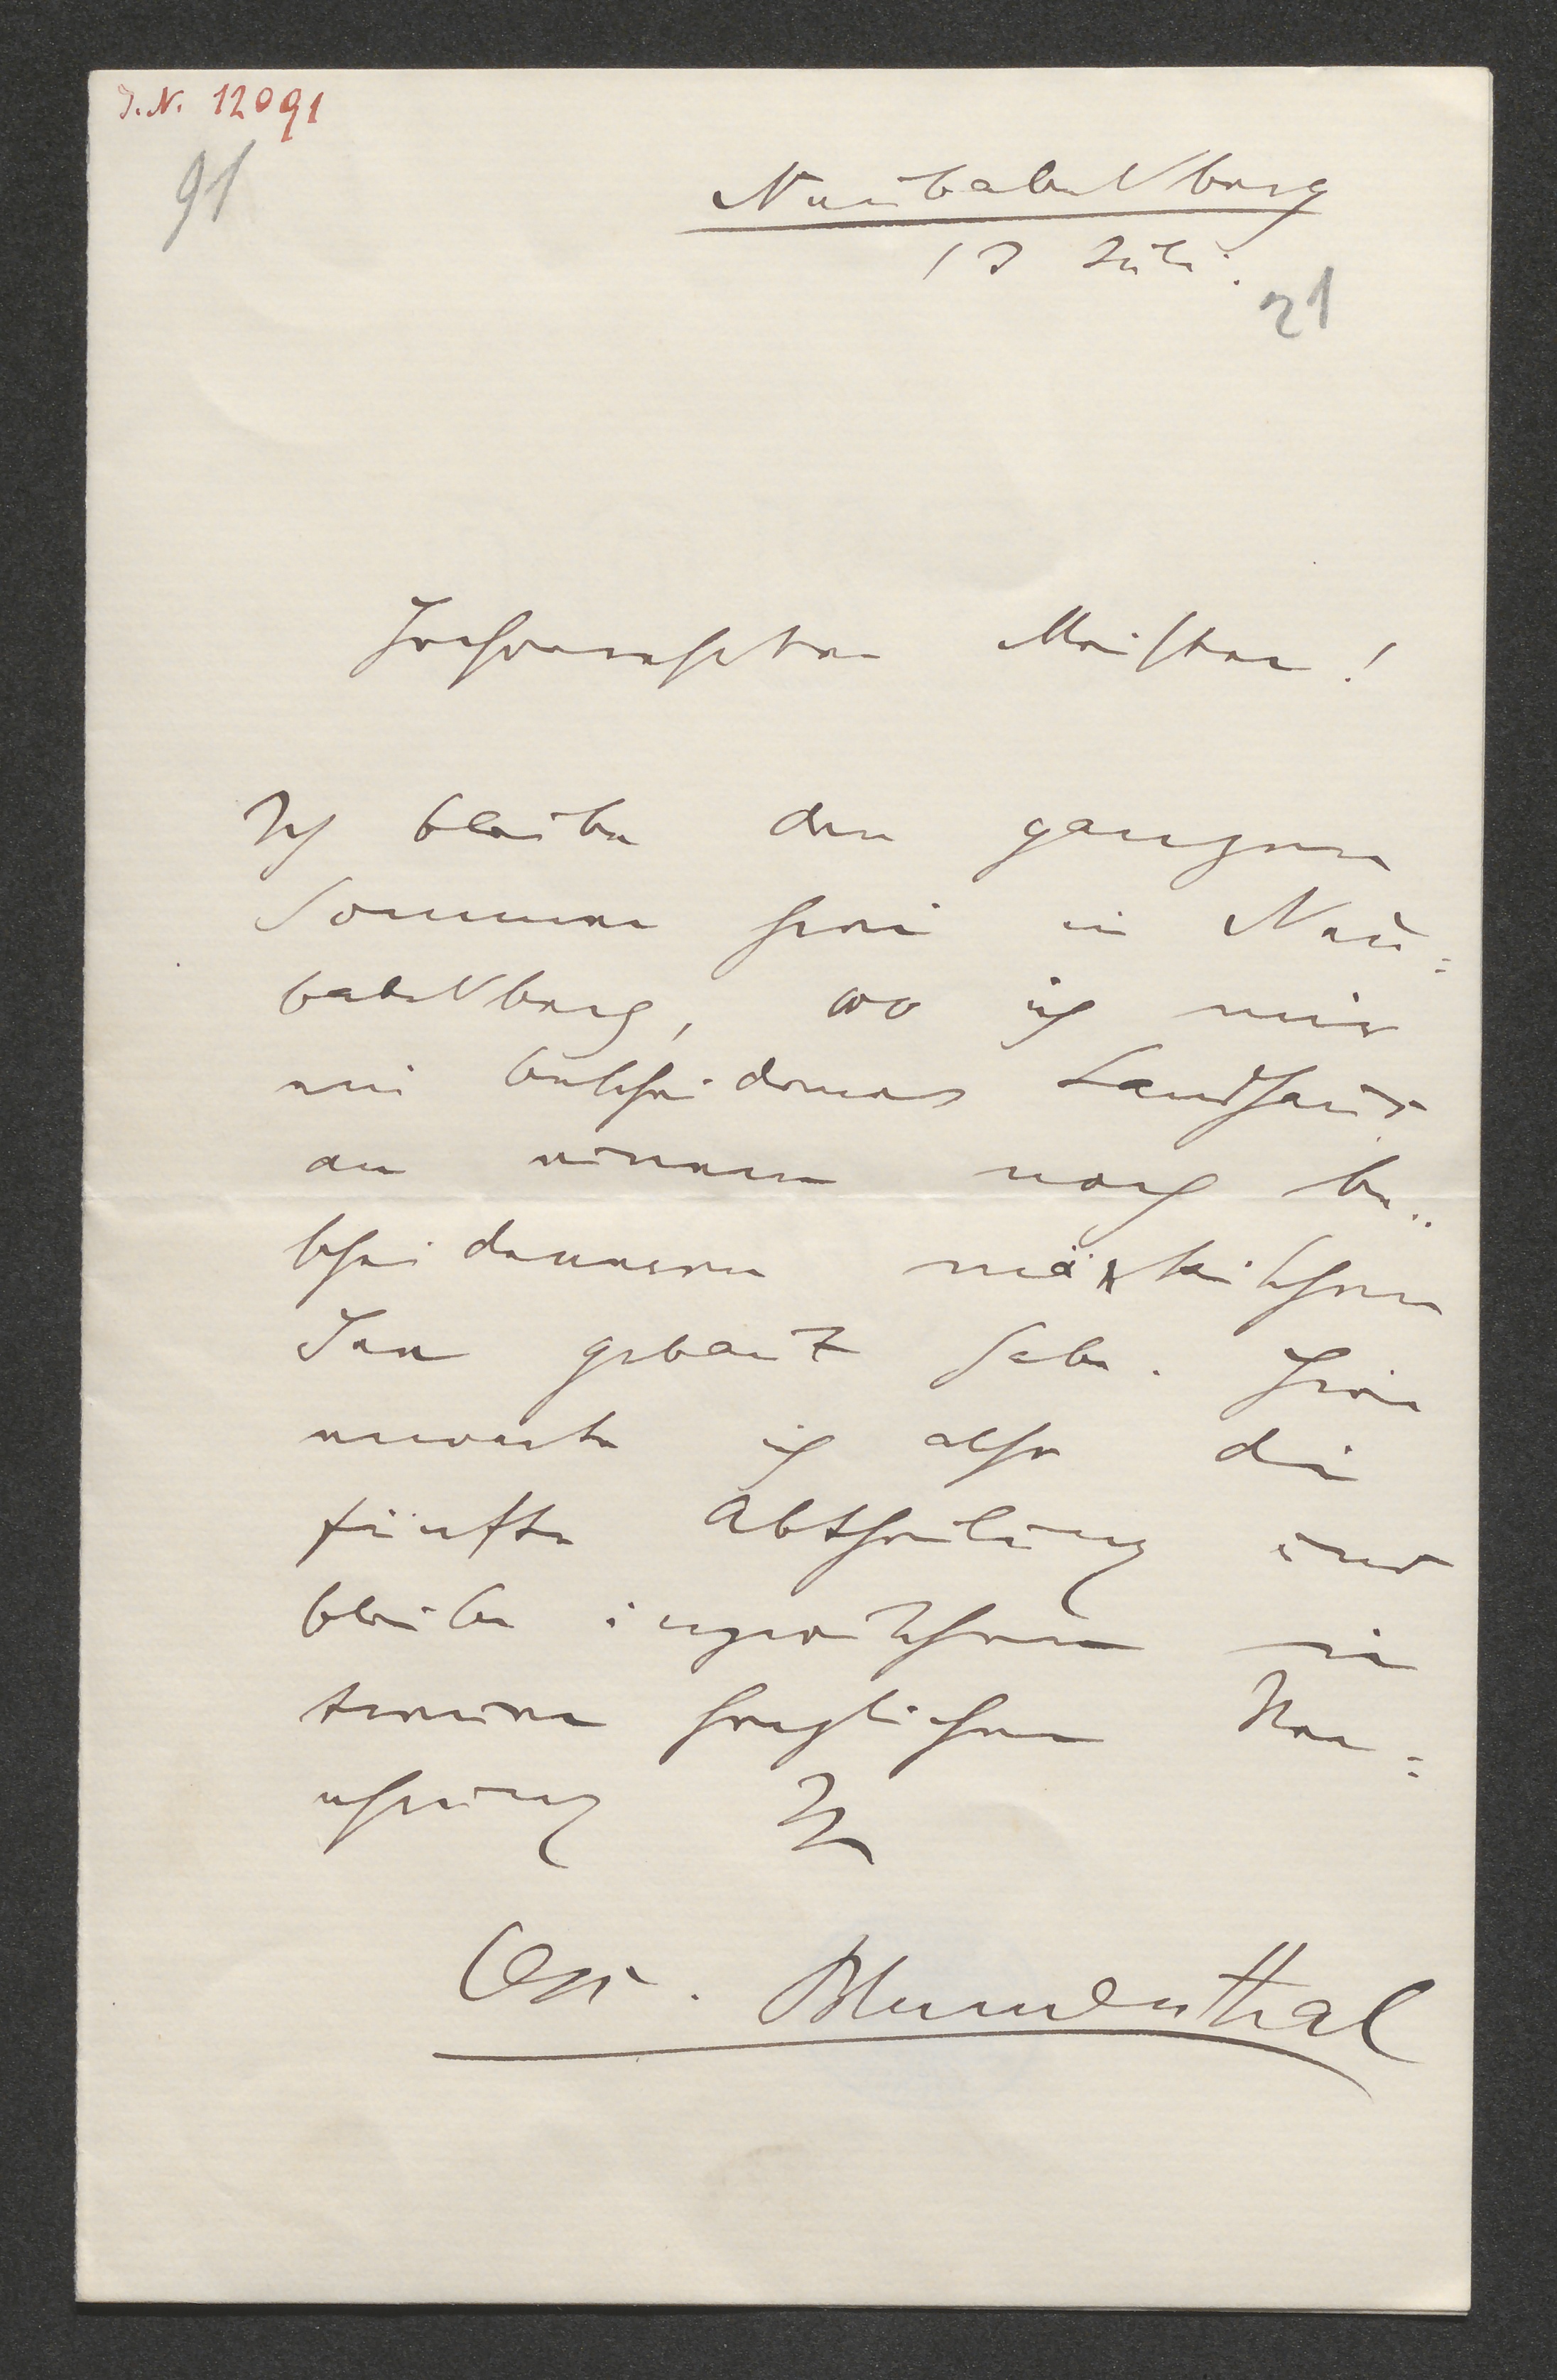 I. N. 12091
91
Neubabelsberg
13 Juli.
21
Hochverehrter Meister!
Ich bleibe den ganzen
Sommer hier in Neu=
babelsberg, wo ich mir
ein bescheidenes Landhaus
an einem noch be=
scheideneren märkischen
See gebaut habe. Hier
erwarte ich also die
fünfte Abtheilung und
bleibe inzwischen in
treuer herzlicher Ver=
ehrung Ihr
Osc. Blumenthal